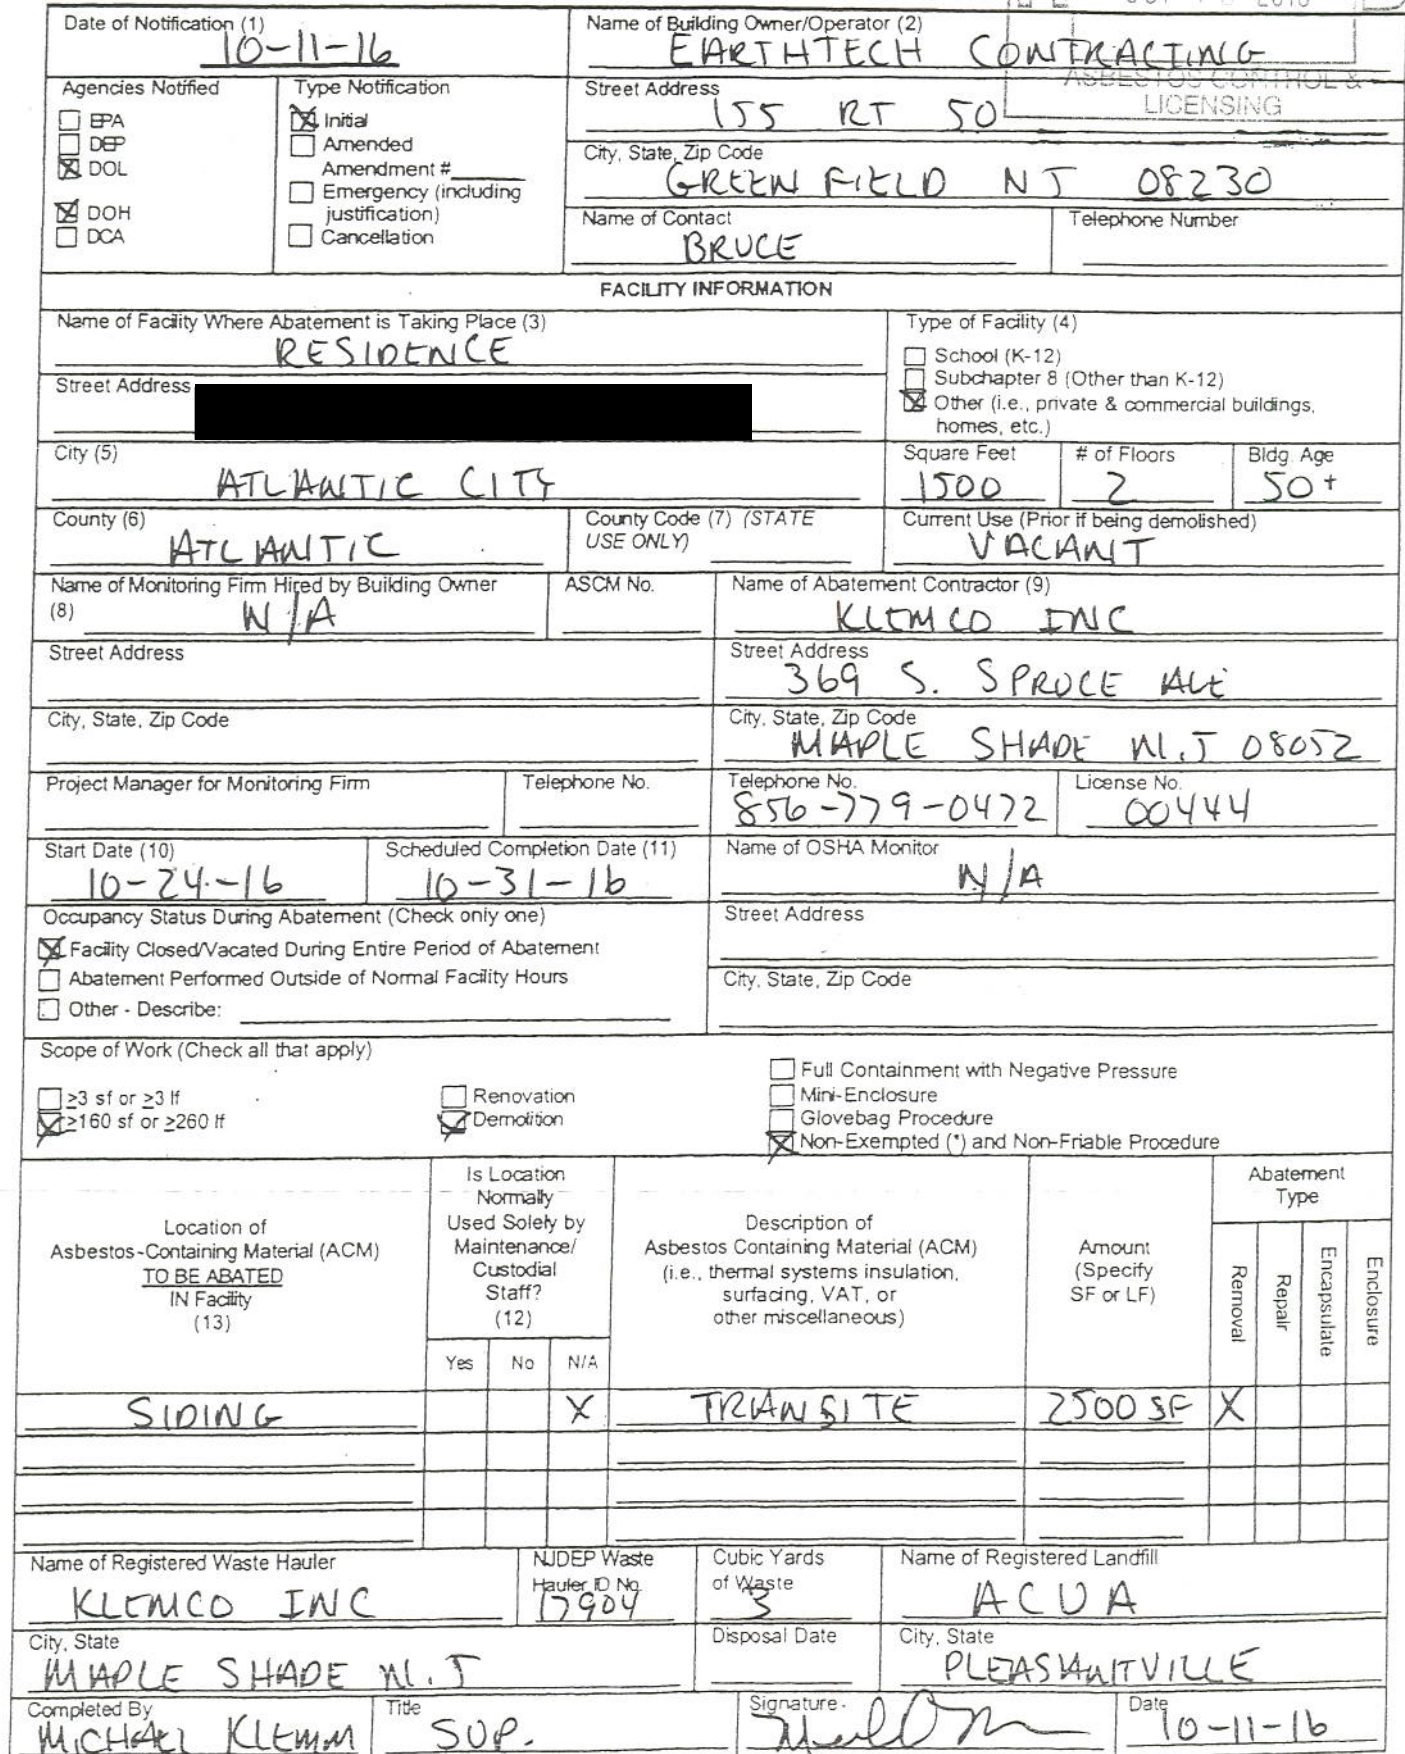 Date of Notification (1)
10-11-16
Name of Building Owner/Operator (2)
EARTHTECH CONTRACTING
ASBESTOS CONTROL &
LICENSING
Agencies Notified
EPA
DEP
DOL
DOH
DCA
Type Notification
Initial
Amended
Amendment #
Emergency (including
justification)
Cancellation
Street Address
155 RT 50
City, State, Zip Code
GREEN FIELD NJ 08230
Name of Contact
BRUCE
Telephone Number
FACILITY INFORMATION
Name of Facility Where Abatement is Taking Place (3)
RESIDENCE
Street Address
Type of Facility (4)
School (K-12)
Subchapter 8 (Other than K-12)
Other (i.e., private & commercial buildings,
homes, etc.)
City (5)
ATLANTIC CITY
Square Feet
1500
# of Floors
2
Bldg. Age
50+
County (6)
ATLANTIC
County Code (7) (STATE
USE ONLY)
Current Use (Prior if being demolished)
VACANT
Name of Monitoring Firm Hired by Building Owner
(8) N/A
ASCM No.
Name of Abatement Contractor (9)
KLEMCO INC
Street Address
Street Address
369 S. SPRUCE AVE
City, State, Zip Code
City, State, Zip Code
MAPLE SHADE N.J 08052
Project Manager for Monitoring Firm
Telephone No.
Telephone No.
856-779-0472
License No.
00444
Start Date (10)
10-24-16
Scheduled Completion Date (11)
10-31-16
Name of OSHA Monitor
N/A
Occupancy Status During Abatement (Check only one)
Facility Closed/Vacated During Entire Period of Abatement
Abatement Performed Outside of Normal Facility Hours
Other - Describe:
Street Address
City, State, Zip Code
Scope of Work (Check all that apply)
≥3 sf or ≥3 lf
≥160 sf or ≥260 lf
Renovation
Demolition
Full Containment with Negative Pressure
Mini-Enclosure
Glovebag Procedure
Non-Exempted (*) and Non-Friable Procedure
Location of
Asbestos-Containing Material (ACM)
TO BE ABATED
IN Facility
(13)
Is Location
Normally
Used Solely by
Maintenance/
Custodial
Staff?
(12)
Yes No N/A
Description of
Asbestos Containing Material (ACM)
(i.e., thermal systems insulation,
surfacing, VAT, or
other miscellaneous)
Amount
(Specify
SF or LF)
Abatement
Type
Removal
Repair
Encapsulate
Enclosure
SIDING X TRANSITE 2500 SF X
Name of Registered Waste Hauler
KLEMCO INC
NJDEP Waste
Hauler ID No.
17904
Cubic Yards
of Waste
3
Name of Registered Landfill
ACUA
City, State
MAPLE SHADE N.J
Disposal Date
City, State
PLEASANTVILLE
Completed By
MICHAEL KLEMM
Title
SUP.
Signature
Date
10-11-16